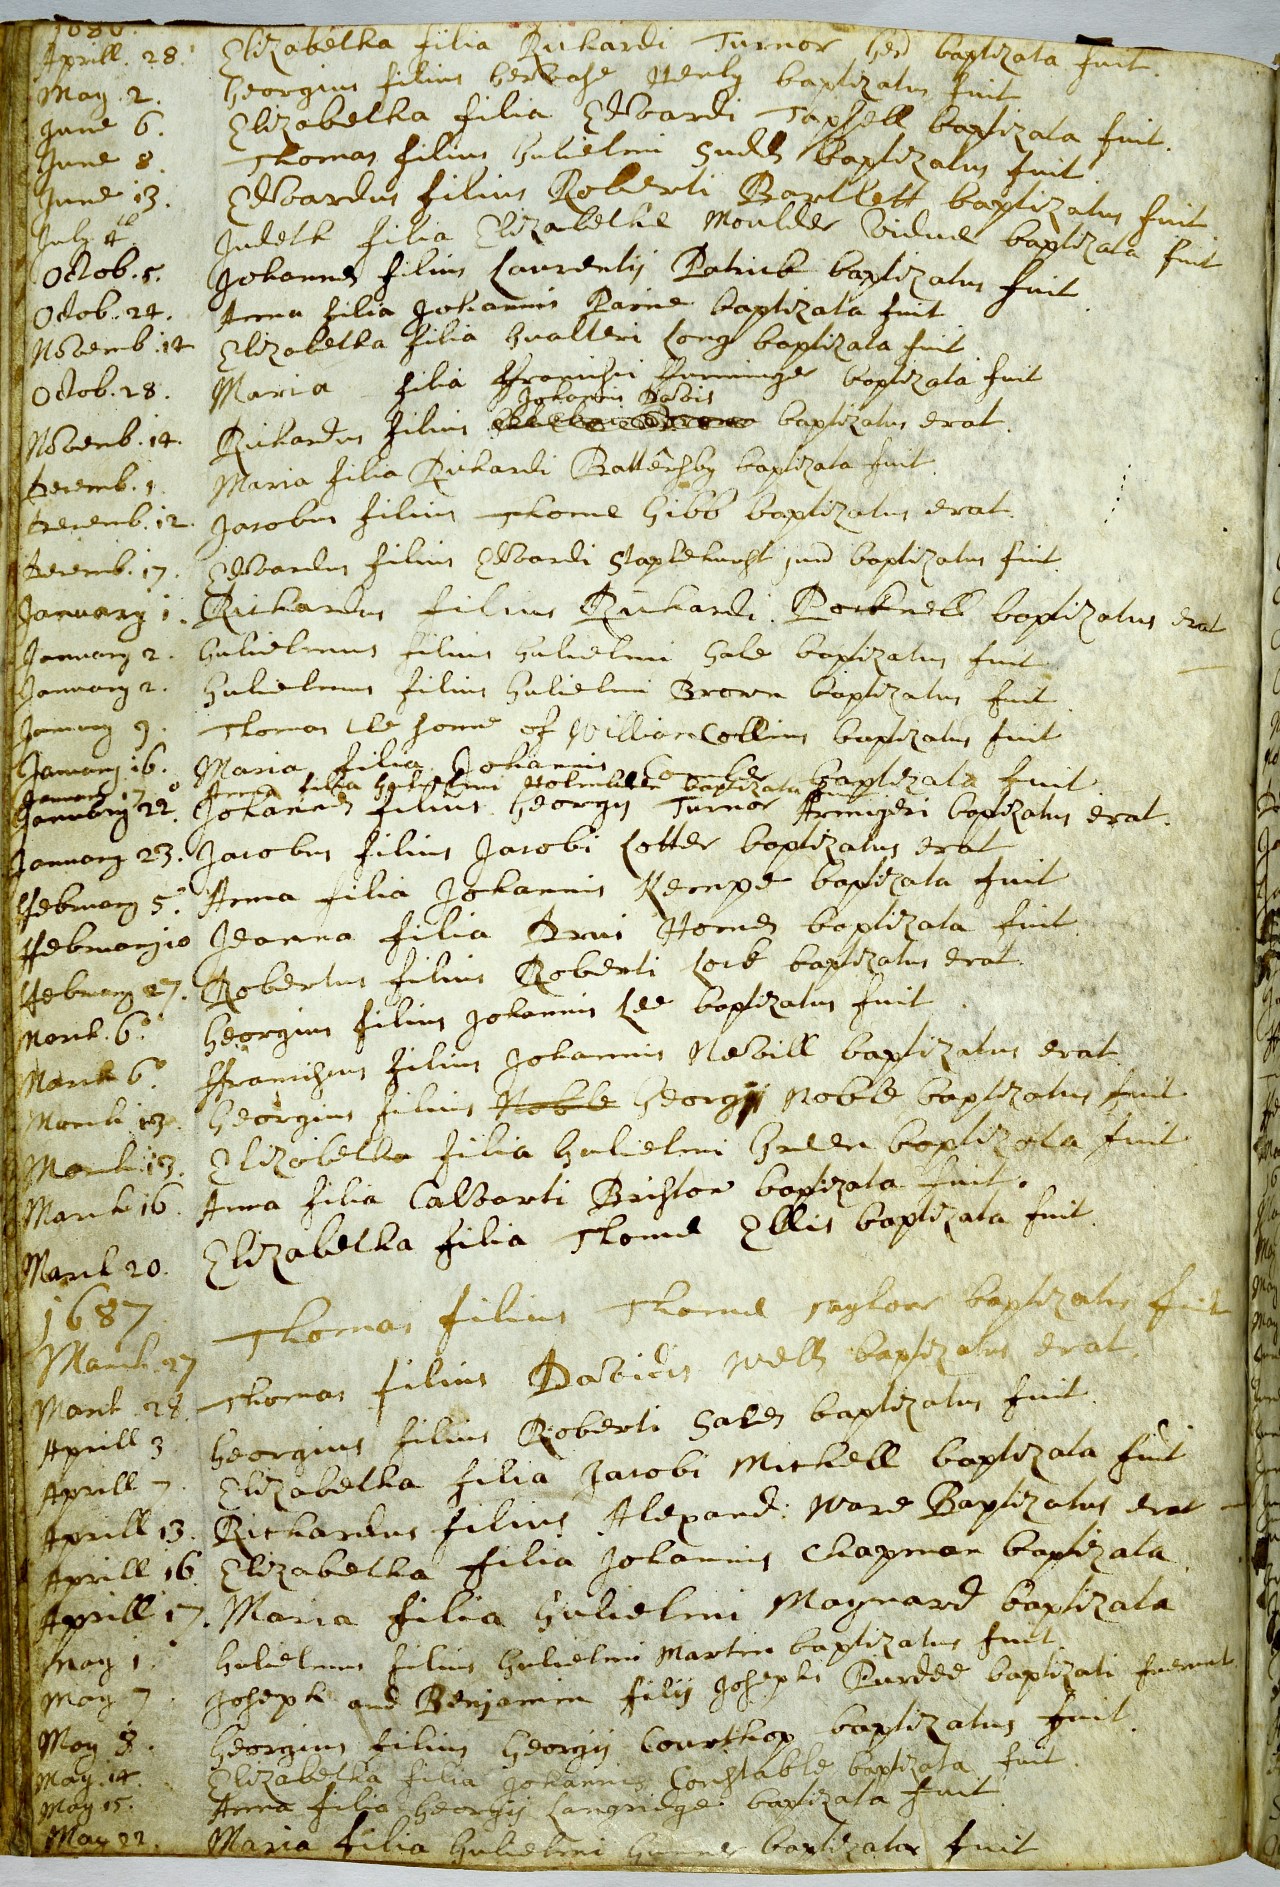 1686.
Aprill. 28. Elizabetha filia Richardi Turnor baptizata fuit.
May. 2. Georgius filius Gervase Henly baptizatus fuit
June 6. Elizabetha filia Edvardi Tapsell baptizata fuit.
June 8. Thomas filius Gulielmi baptizatus fuit
June 13. Edvardus filius Roberti Bartlett baptizatus fuit
July. 4. Judeth filia Elizabethe Moulder Vidue baptizata fuit
Octob. 5. Johannes filius Laurentij Patrick baptizatus fuit
Octob. 24. Anna filia Johannis Paine baptizata fuit
Novemb. 14 Elizabetha filia Gualteri Long baptizata fuit
Octob. 28. Maria filia ffrancisci baptizata fuit
Johannis Davis
Novemb. 14. Richardus filius baptizatus erat.
Decemb. 1. Maria filia Richardi Battershby baptizata fuit.
Decemb. 12. Jacobus filius Thome Gibb baptizatus erat.
Decemb. 17. Edvardus filius Edvardi Staplehurst jun baptizatus fuit.
January 1. Richardus filius Richardi Pocknell baptizatus erat
January 2. Gulielmus filius Gulielmi Gale baptizatus fuit
January 2. Gulielmus filius Gulielmi Brown baptizatus fuit.
January 9. Thomas the sonne of William Collins baptizatus fuit
January. 16. Maria filia Johannis baptizata fuit.
January 17 Anna filia Gulielmi baptizata fuit
January 22. Johannes filius Georgij Turnor Armigeri baptizatus erat.
January 23. Jacobus filius Jacobi Cotter baptizatus erat
ffebruary 5. Anna filia Johannis Kempe baptizata fuit
ffebruary 10 Jeanna filia Homes baptizata fuit.
ffebruary 27. Robertus filius Roberti Lock baptizatus erat.
March. 6. Georgius filius Johannis Lee baptizatus fuit.
March 6. ffranciscus filius Johannis Nevill baptizatus erat.
March 13. Georgius filius Noble Georgij Noble baptizatus fuit
March. 13. Elizabetha filia Gulielmi Green baptizata fuit
March 16. Anna filia Calvarti Bristow baptizata fuit.
March 20. Elizabetha filia Thome Ellis baptizata fuit.
1687
March 27 Thomas filius Thome Taylour baptizatus fuit
March. 28. Thomas filius Davidis Wells baptizatus erat.
Aprill 3 Georgius filius Roberti Sales baptizatus fuit.
Aprill 7. Elizabetha filia Jacobi Michell baptizata fuit
Aprill 13. Richardus filius Alexand: Ware Baptizatus erat
Aprill 16. Elizabetha filia Johannis Chapman baptizata
Aprill 17. Maria filia Gulielmi Maynard baptizata
May 1. Gulielmus filius Gulielmi Martin baptizatus fuit.
May 7. Joseph and Benjamin filij Josephi Purdee baptizati fuerunt.
May 8. Georgius filius Georgij Courthop baptizatus fuit.
May. 14. Elizabetha filia Johannis Constable baptizata fuit.
May 15. Anna filia Georgij Langridge baptizata fuit.
May 22. Maria filia Gulielmi baptizata fuit